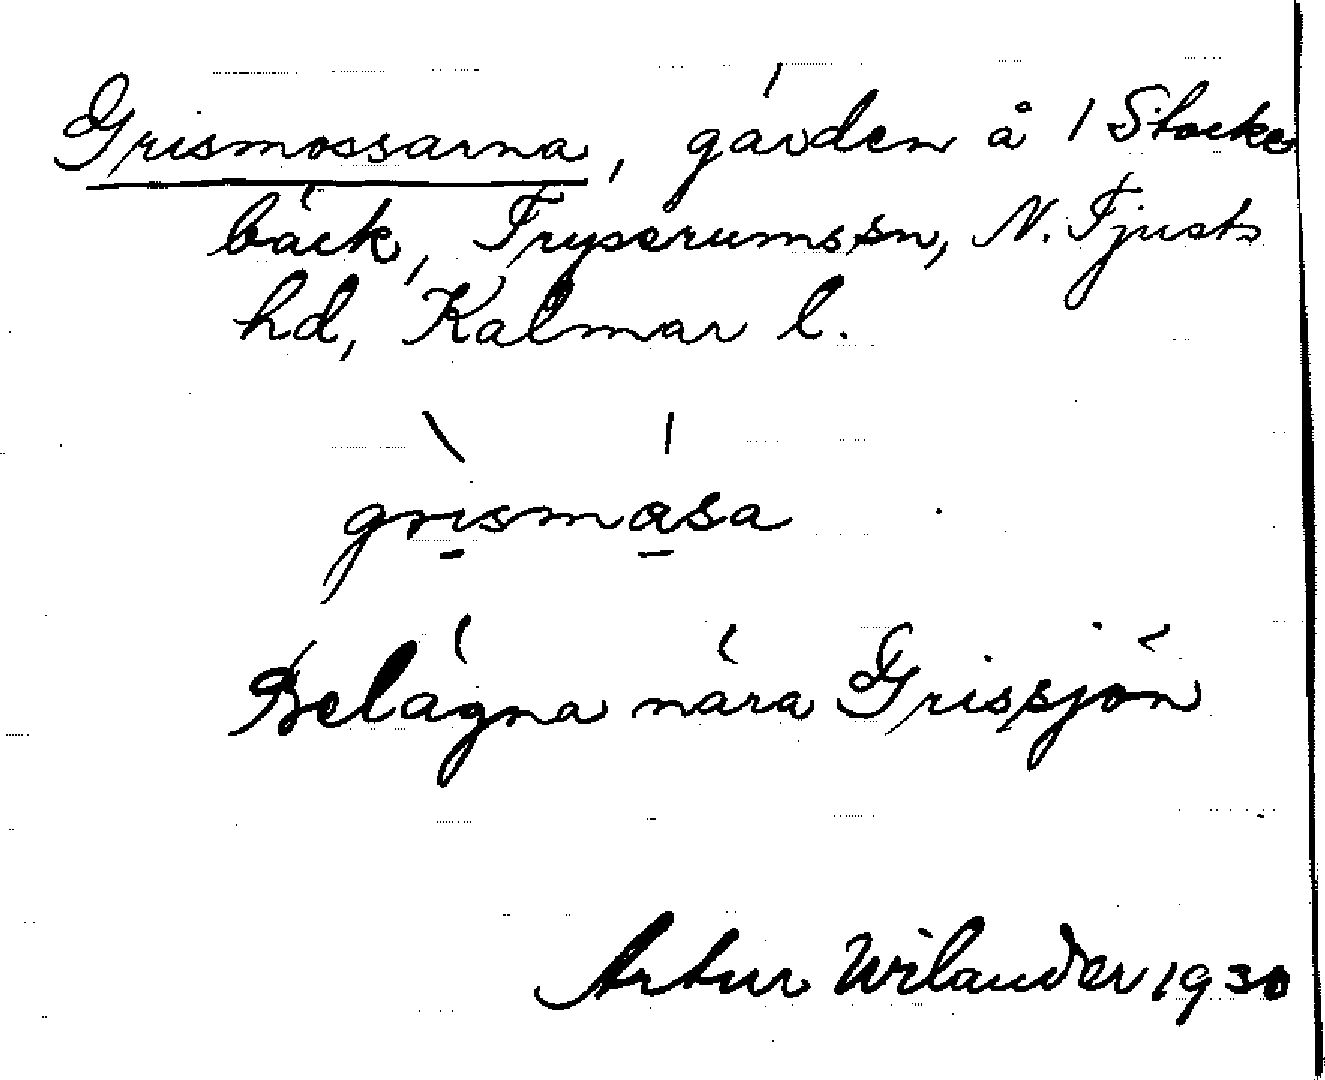 Grismossarna, gärden å 1 Stocke
bäck, Tryserums sn, N. Tjusts
hd, Kalmar l.
grìsmása
Belägna nära Grissjön
Artur Wilander 1930